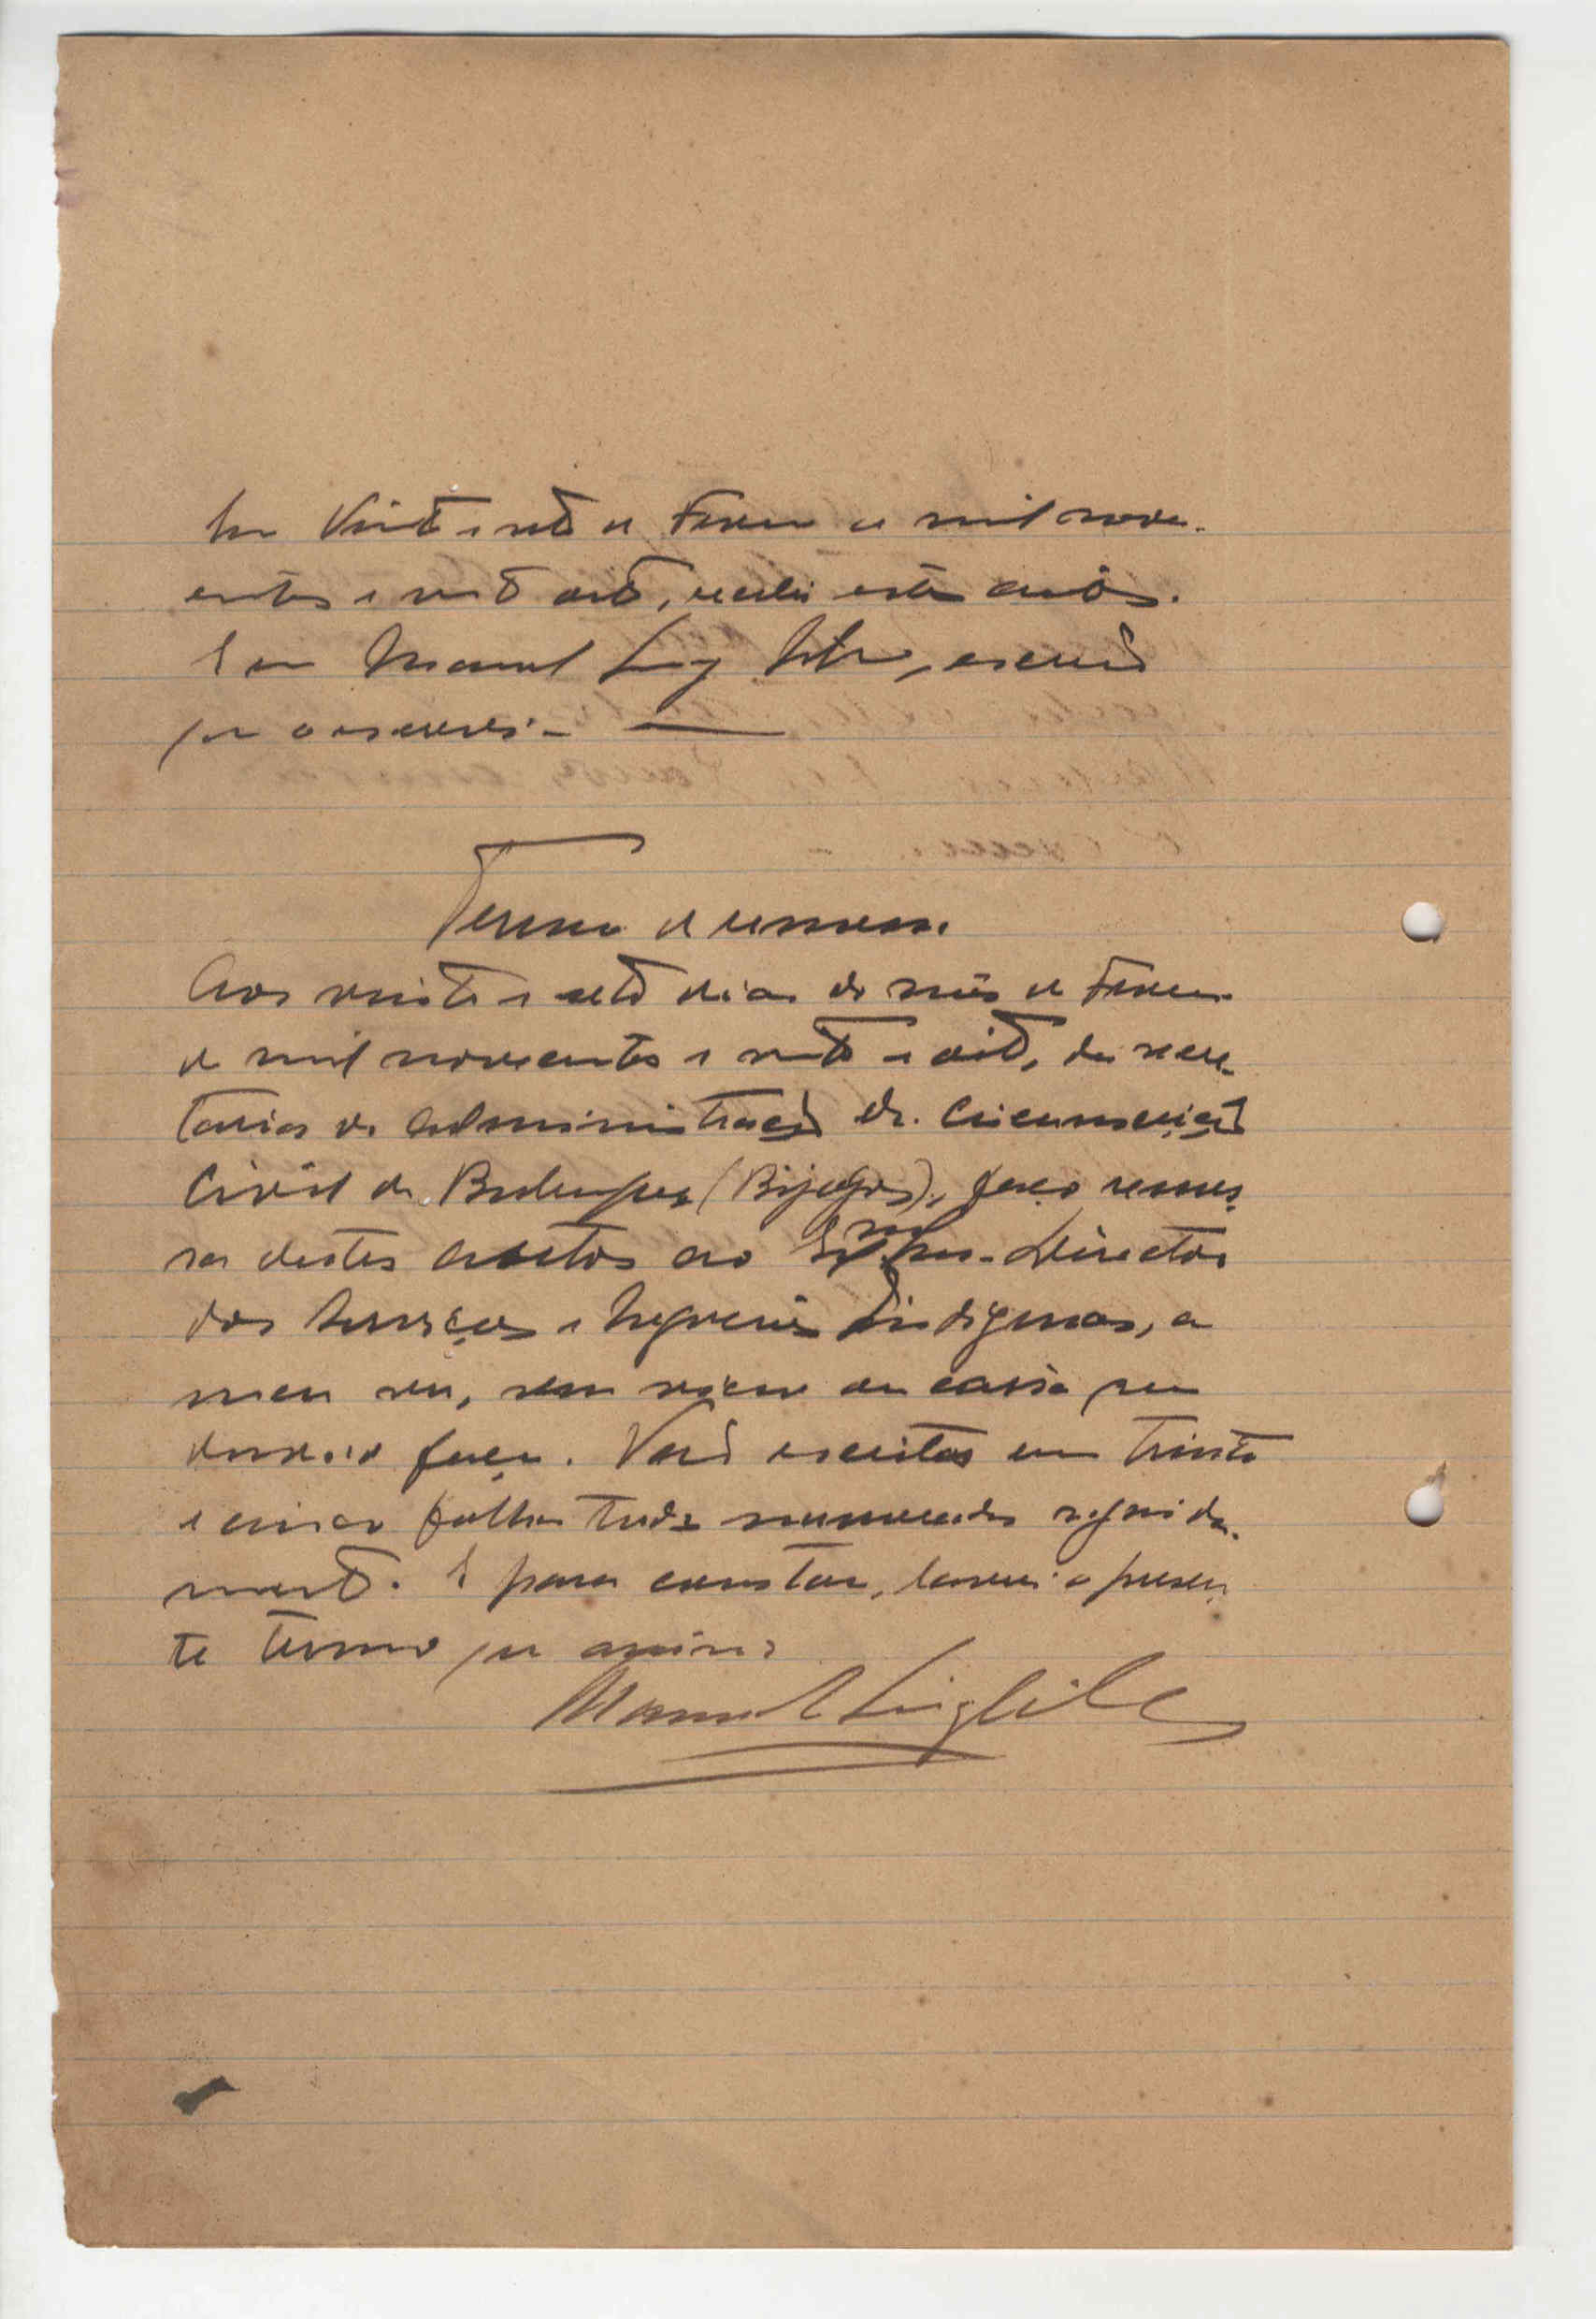 Em Vinte e sete de Fever. de mil nove-
centos e vinte oito, recebi estes autos.
E eu Manuel Luiz escrivão
que o escrevi. —
Termo de remessa.
Aos vinte e sete dias do mês de Fever.
de mil novecentos e vinte e oito, da secre-
taria da Administração da Circunscrição
Civil de Bubaque (Bijagós), faço remes-
sa destes autos ao Exmo. Snr. Director
dos Serviços e Negocios Indigenas, a
meu ver, sem vicio ou coisa que
duvida faça. Vão escritos em trinta
e cinco folhas todas numeradas seguida-
mente. E para constar, lavrei o presen-
te termo que assino
Manuel Luiz